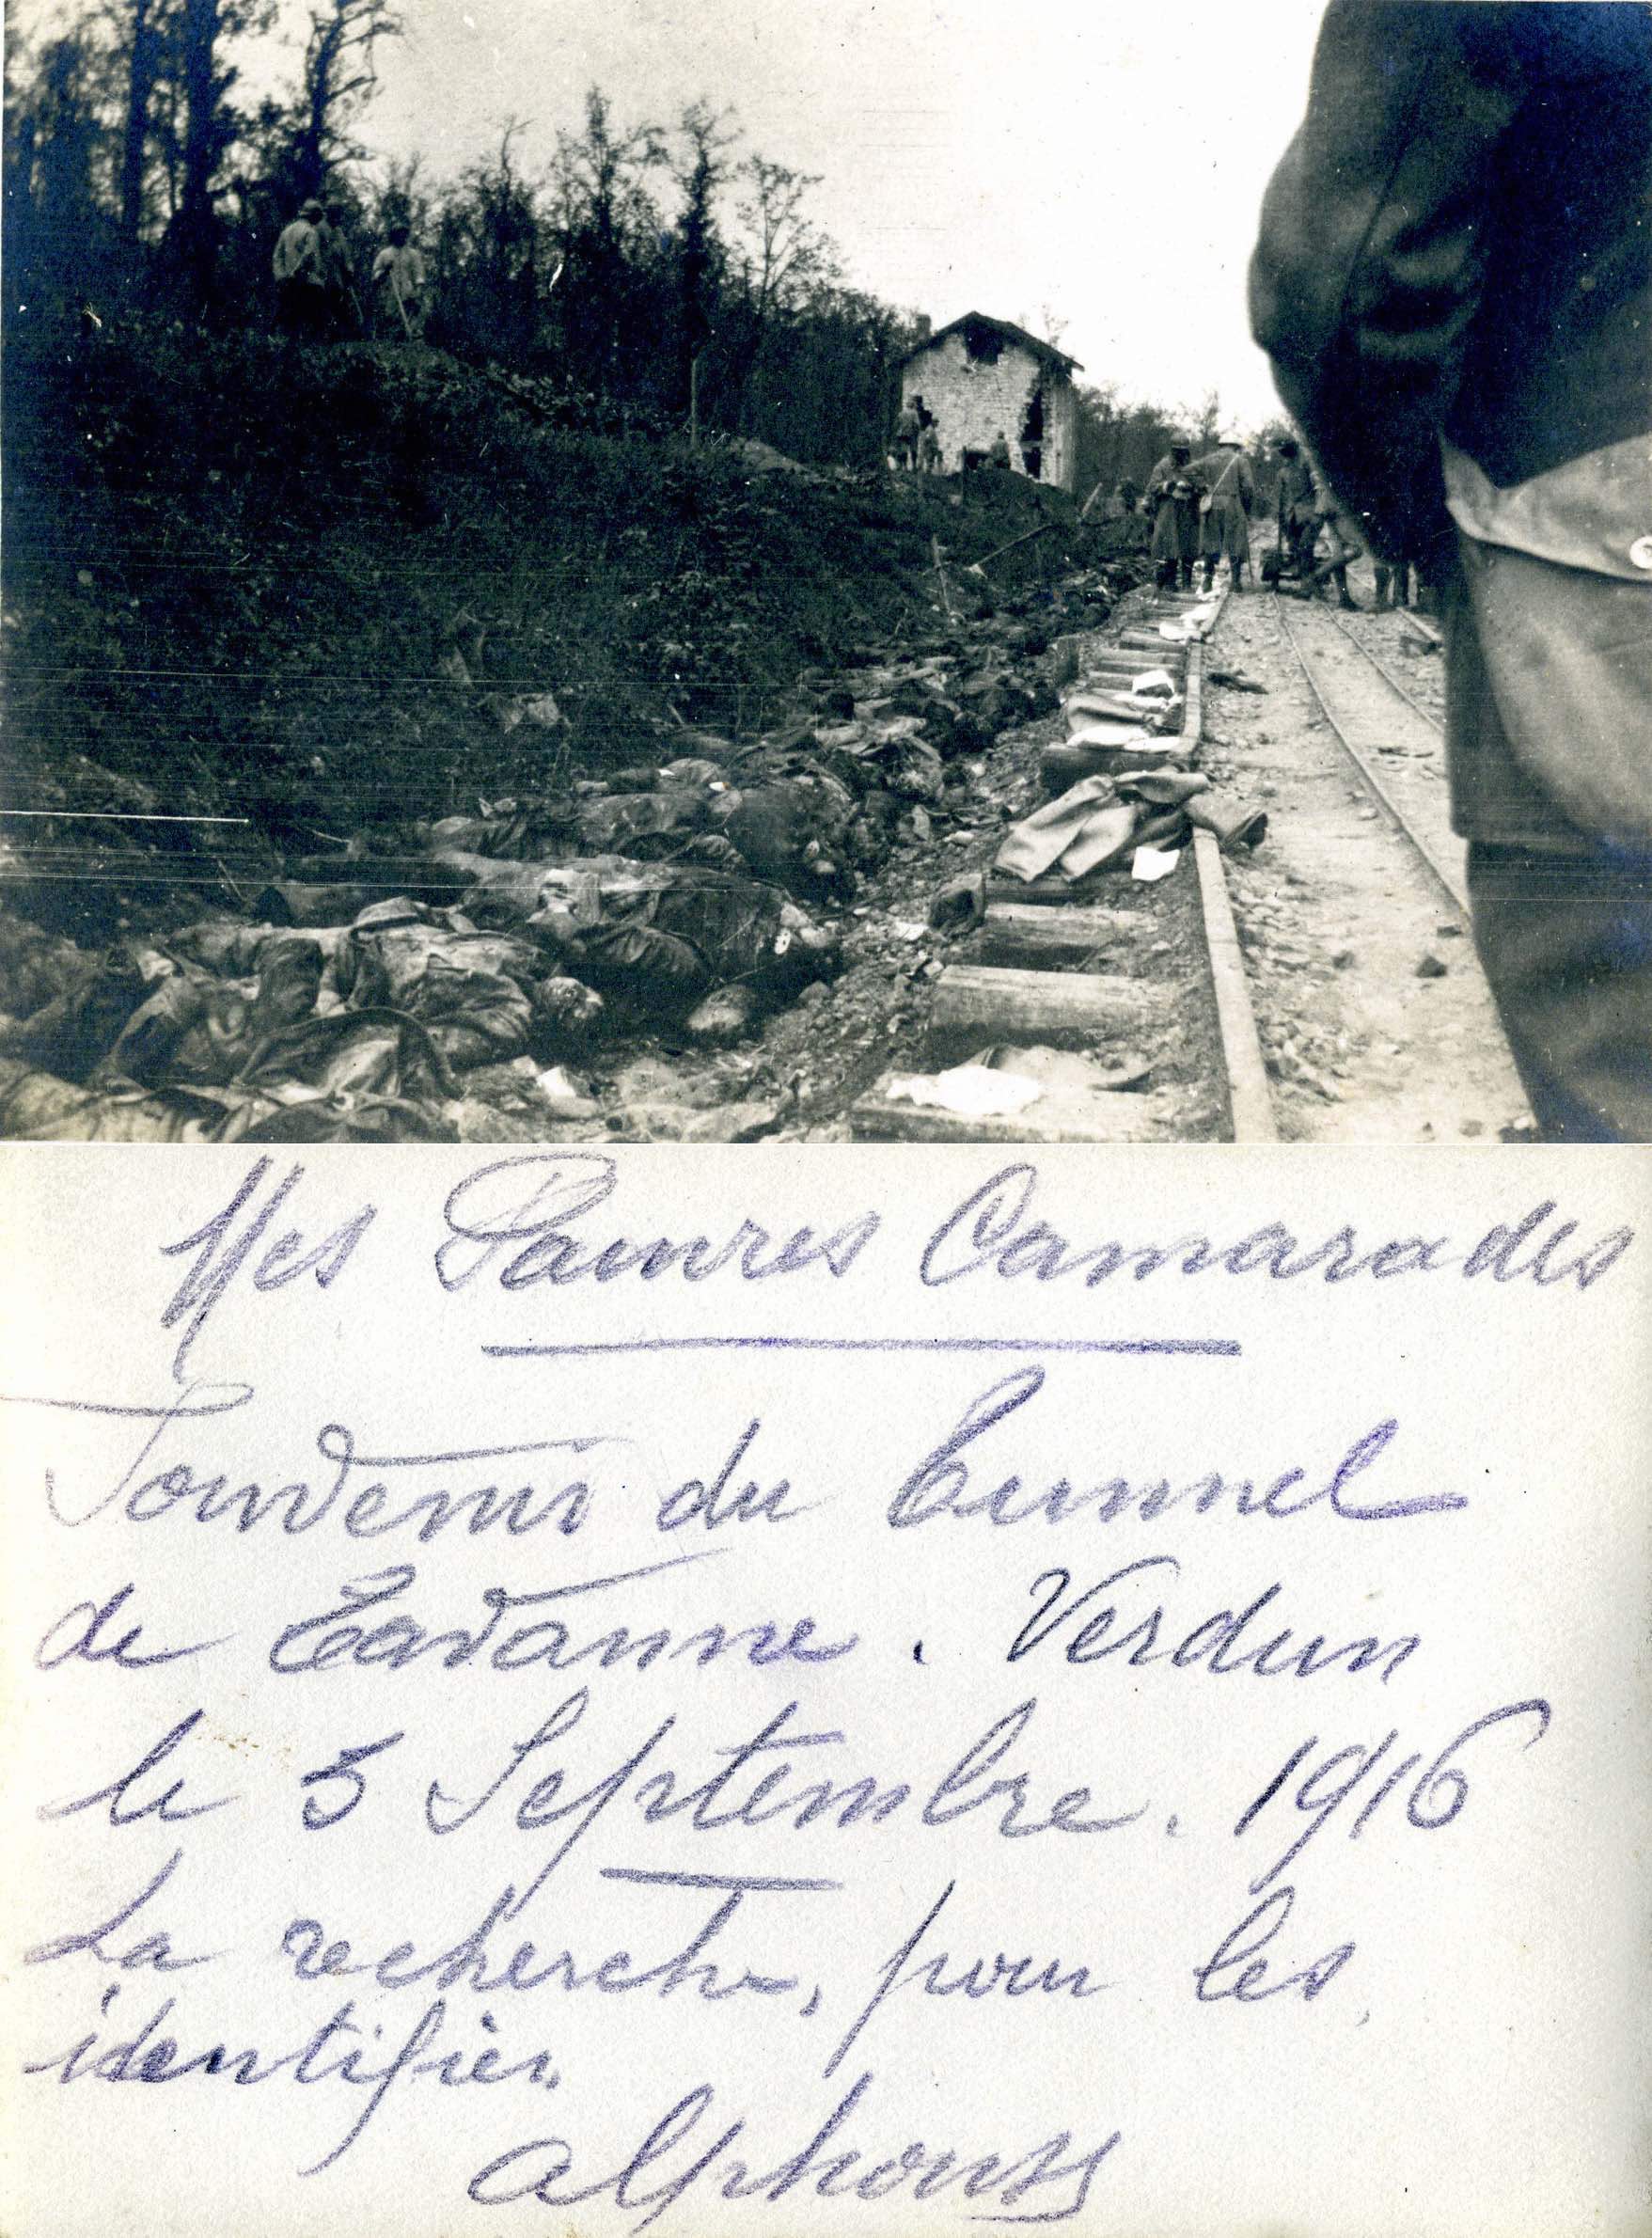 Mes Pauvres Camarades
Souvenir du Tunnel
de Tavanne. Verdun
le 5 Septembre. 1916
La recherche, pour les
identifier.
Alphonse